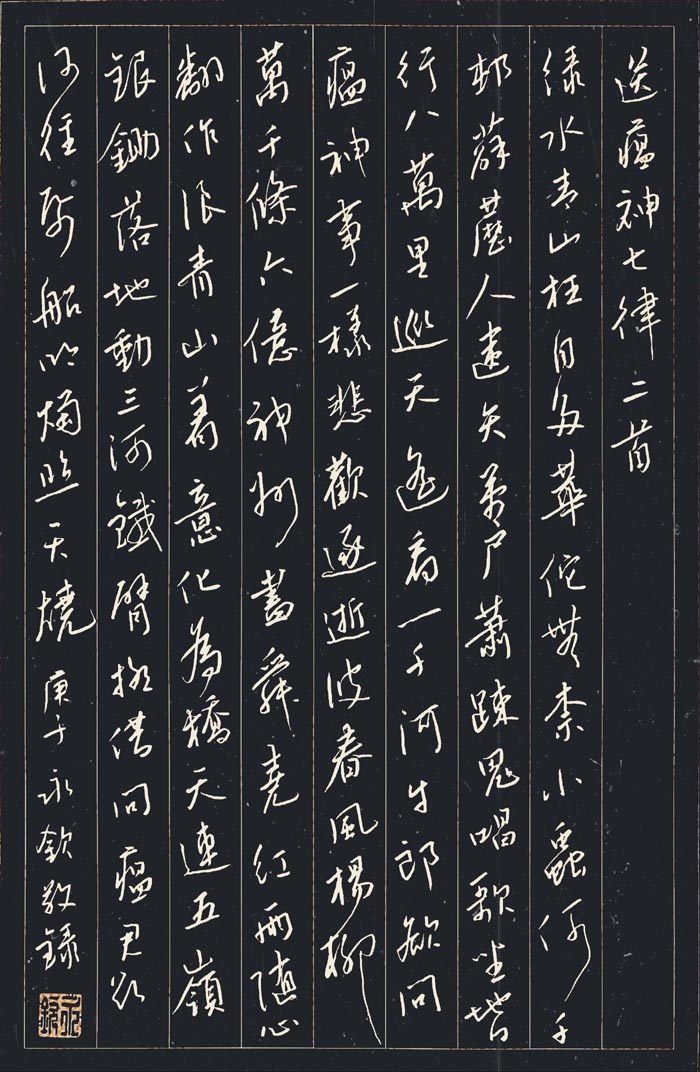 送瘟神七律二首
绿水青山枉自多華佗無奈小蟲何千
邨薜藶人遺矢萬户蕭疎鬼唱歌坐地日
行八萬里巡天遥看一千河牛郎欲問
瘟神事一樣悲歡逐逝波春風楊柳
萬千條六億神州盡舜堯紅雨随心
翻作浪青山着意化為橋天連五嶺
銀鋤落地動三河鐵臂摇借問瘟君欲
何往紙船明燭照天燒 庚子永欽敬録
永欽